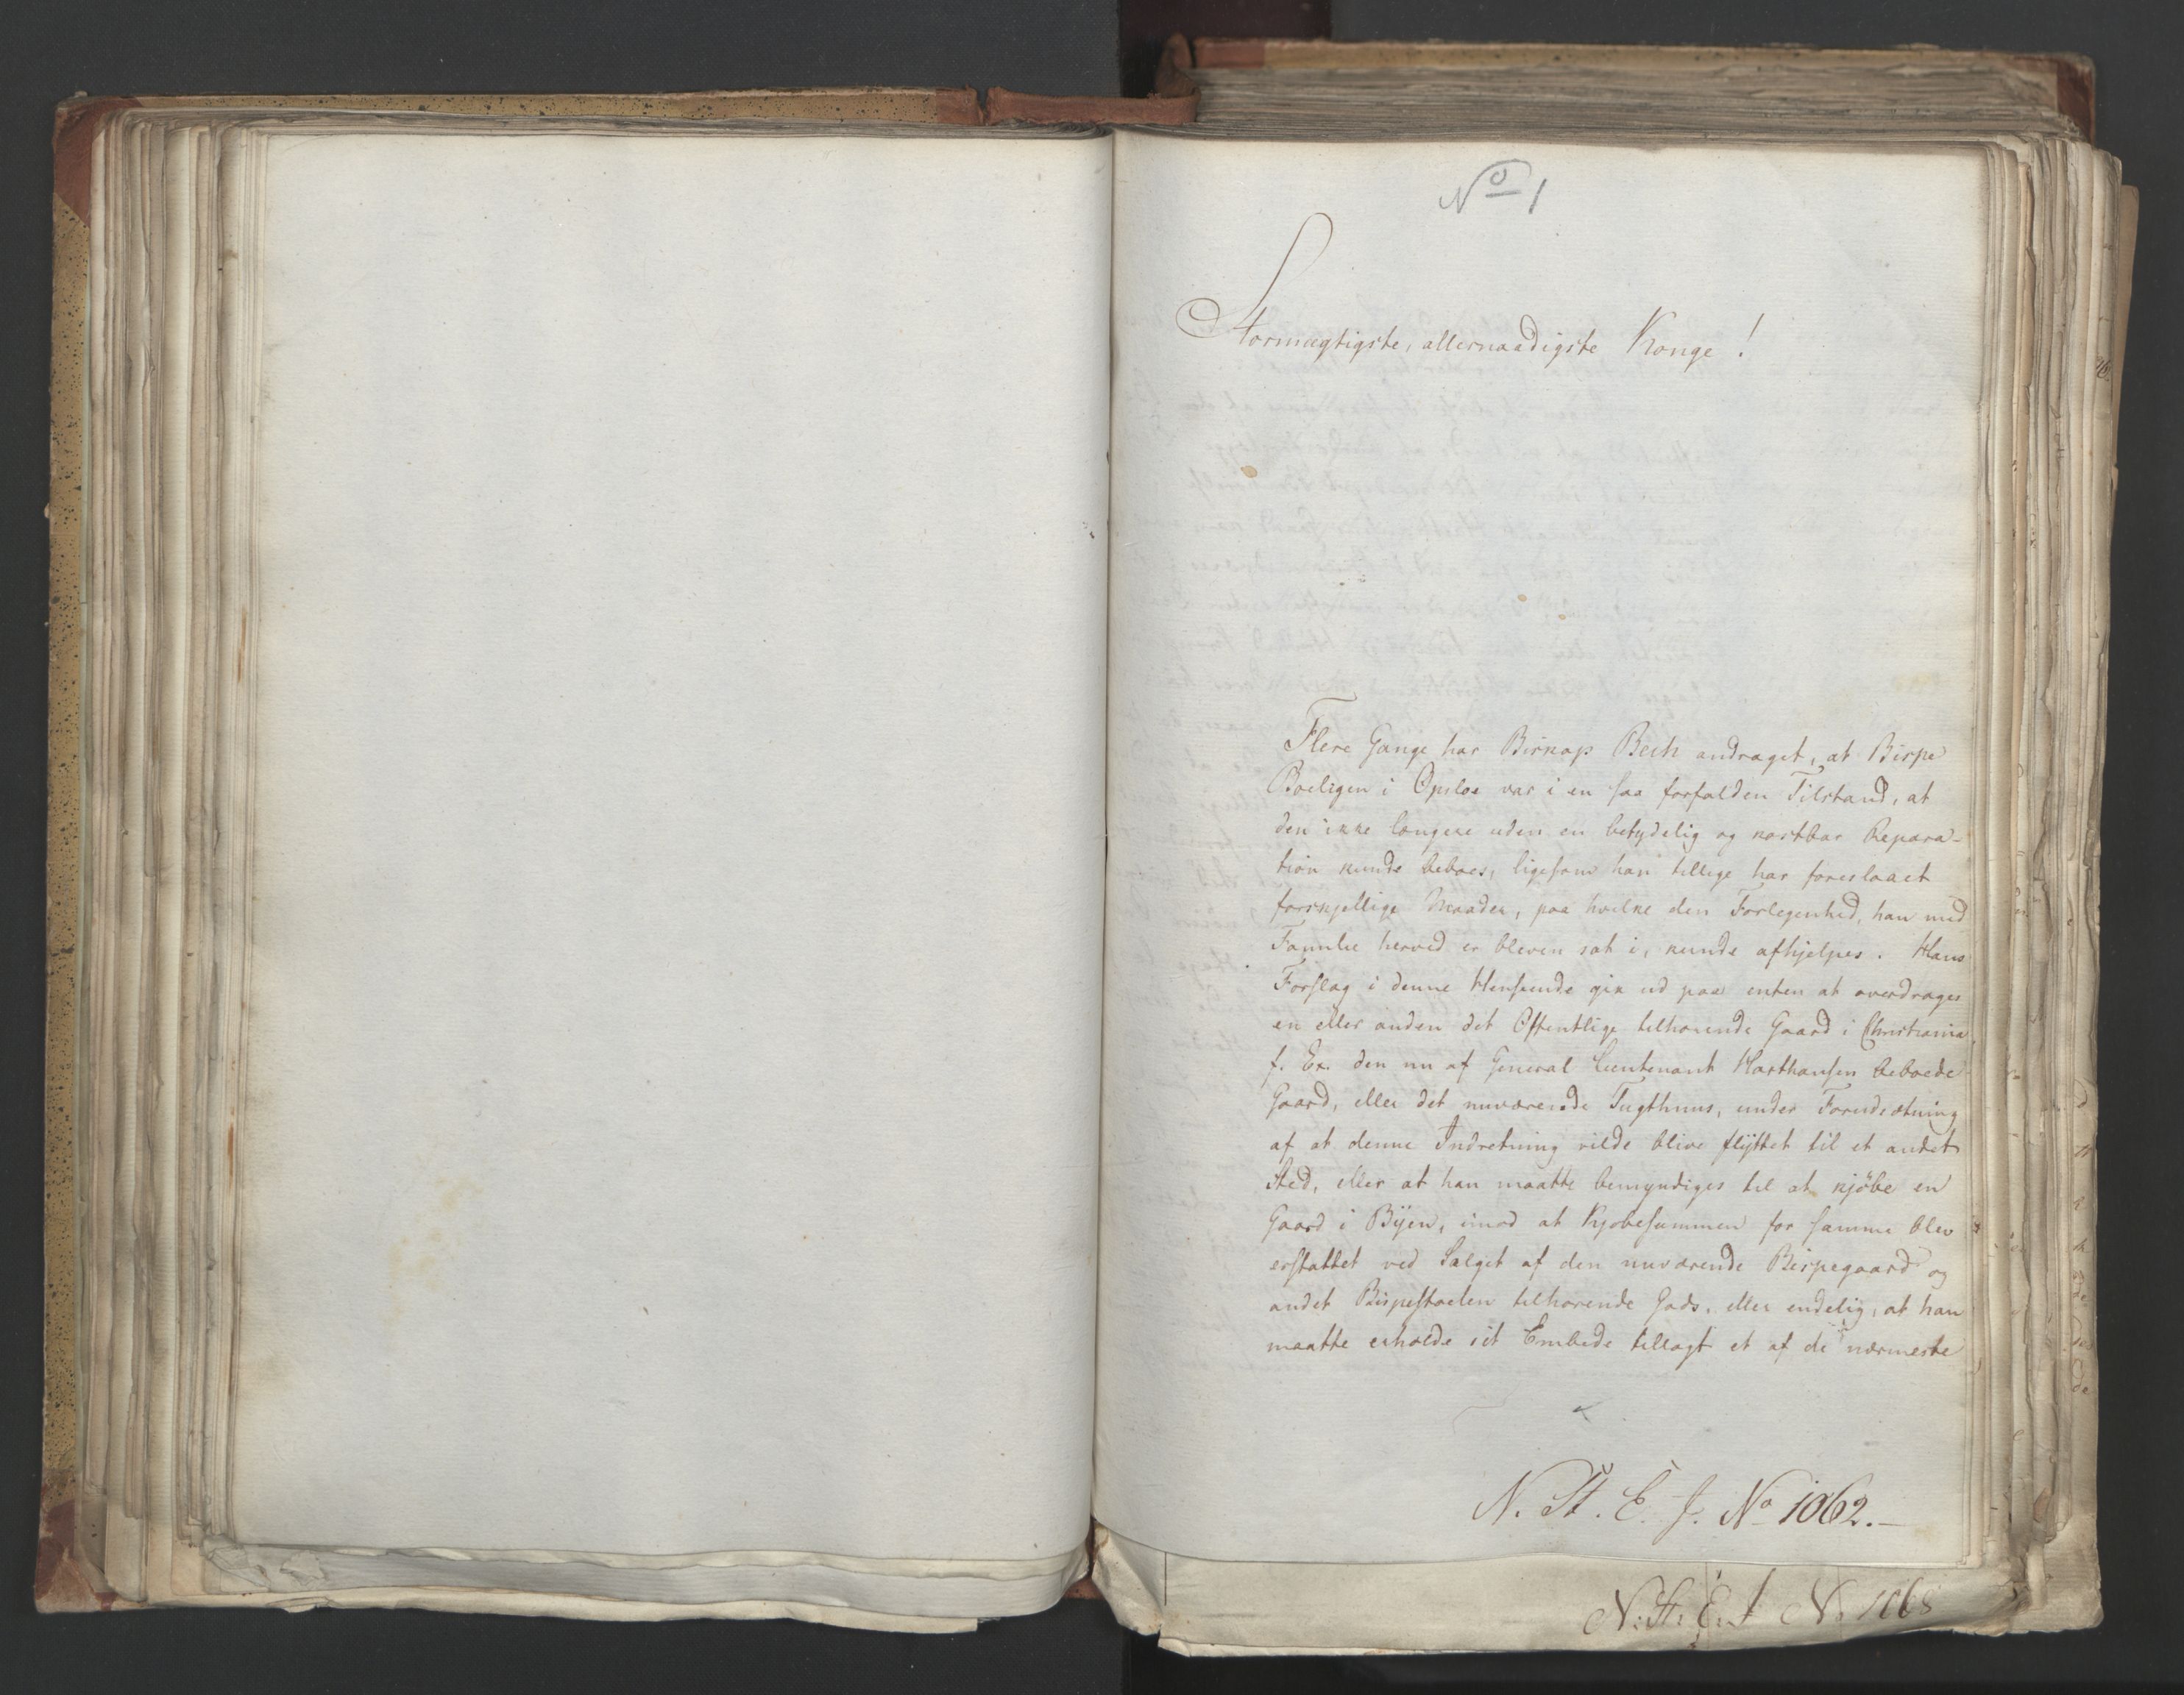 No 1
Stormægtigste, allernaadigste Konge!
Flere Gange har Biskop Bech andraget, at Bispe
Boeligen i Opsloe var i en saa forfalden Tilstand, at
den ikke længere uden en betydelig og kostbar Repara-
tion kunde beboes, ligesom han tillige har foreslaaet
forskjellige Maader, paa hvilke den Forlegenhed, han med
Familie herved er bleven sat i, kunde afhjelpes. Hans
Forslag i denne Henseende gik ud paa enten at overdrages
en eller anden det Offentlige tilhørende Gaard i Christiania,
f. Ex. den nu af General Lieutenant Haxthausen beboede
Gaard, eller det nuværende Tugthuus, under Forudsætning
af at denne Indretning vilde blive flÿttet til et andet
Sted, eller at han maatte bemyndiges til at kjöbe en
Gaard i Bÿen, imod at Kjøbesummen for samme blev
erstattet ved Salget af den nuværende Bispegaard og
andet Bispestolen tilhørende Gods, eller endelig, at han
maatte erholde sit Embede tillagt et af de nærmeste
N. St. E. J. No 1062.-
N. St. E. J No 1068